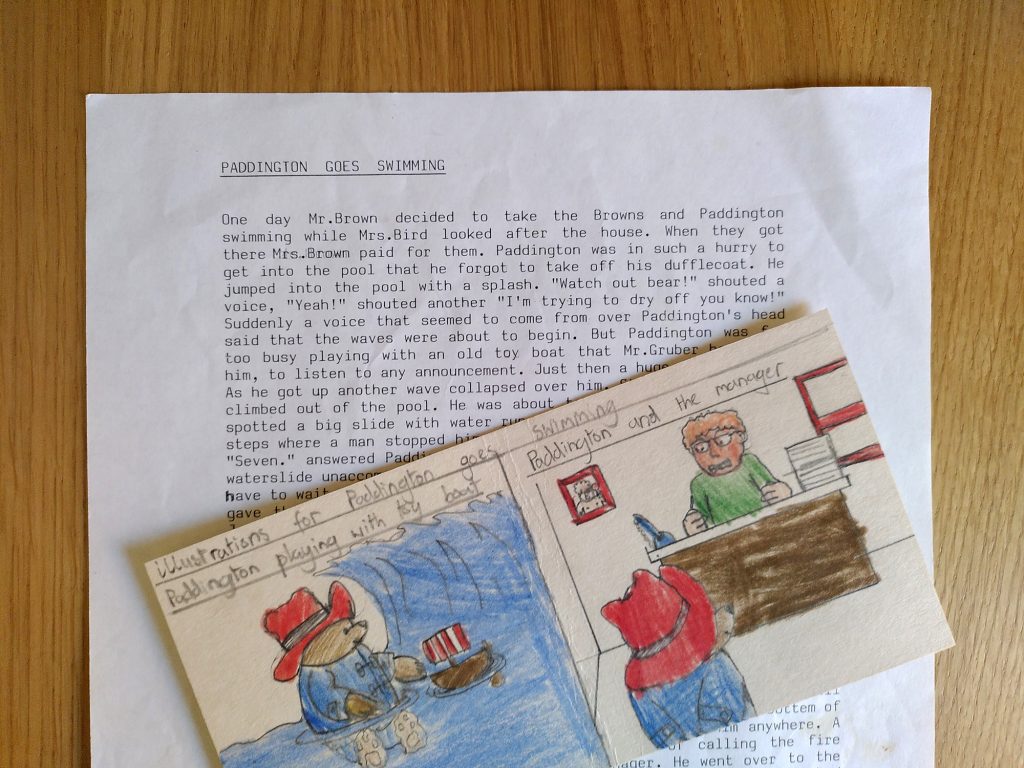 PADDINGTON GOES SWIMMING
One day Mr.Brown decided to take the Browns and Paddington
swimming while Mrs.Bird looked after the house. When they got
there Mrs.Brown paid for them. Paddington was in such a hurry to
get into the pool that he forgot to take off his dufflecoat. He
jumped into the pool with a splash. "Watch out bear!" shouted a
voice, "Yeah!" shouted another "I'm trying to dry off you know!"
Suddenly a voice that seemed to come from over Paddington's head
said that the waves were about to begin. But Paddington was
too busy playing with an old toy boat that Mr.Gruber
him, to listen to any announcement. Just then a huge
As he got up another wave collapsed over him.
climbed out of the pool. He was about
spotted a big slide with water
steps where a man stopped
"Seven." answered
waterslide
have to wait
gave
illustrations for Paddington goes swimming
Paddington playing with toy boat
Paddington and the manager
of
anywhere. A
of calling the fire
He went over to the